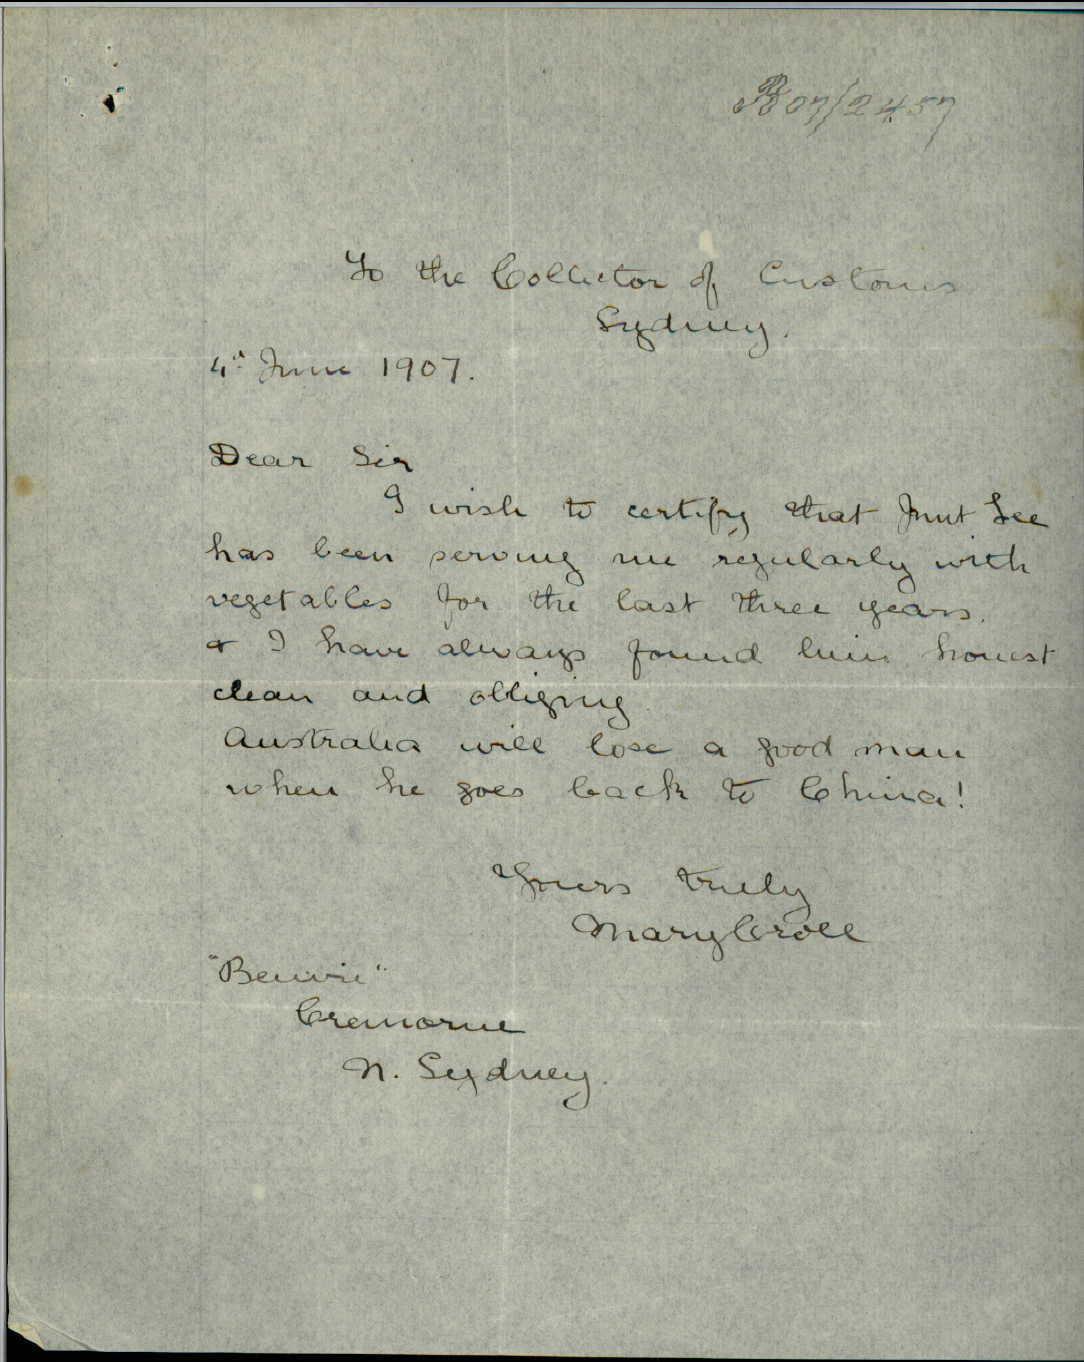 B07/2457
To the Collector of Customs
Sydney.
4th June 1907.
Dear Sir
I wish to certify that Lee
has been serving me regularly with
vegetables for the last three years.
& I have always found him honest
clean and obliging
Australia will lose a good man
when he goes back to China!
Yours truly
Mary Croll
Cremorne
N. Sydney.